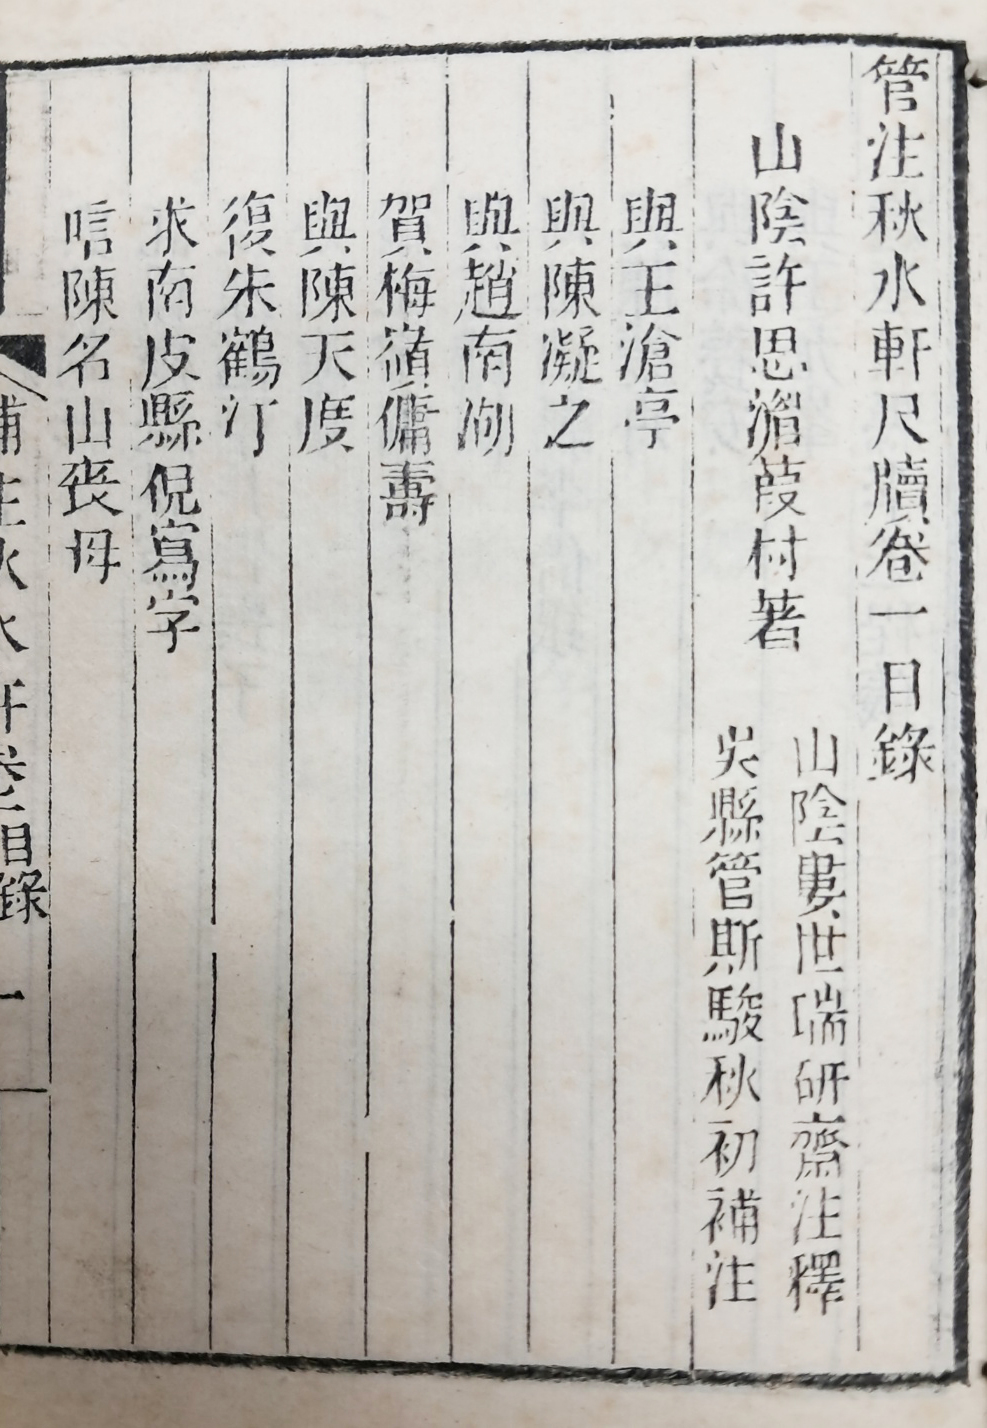 管注秋水軒尺牘卷一目錄
山陰許思湄葭村著
山陰婁世瑞硏齋注釋
吳縣管斯駿秋初補注
與王滄亭
與陳凝之
與趙南湖
賀梅嶺傭壽
與陳天度
復朱鶴汀
求南皮縣倪寫字
唁陳名山喪母
補注秋水軒卷一目錄 一